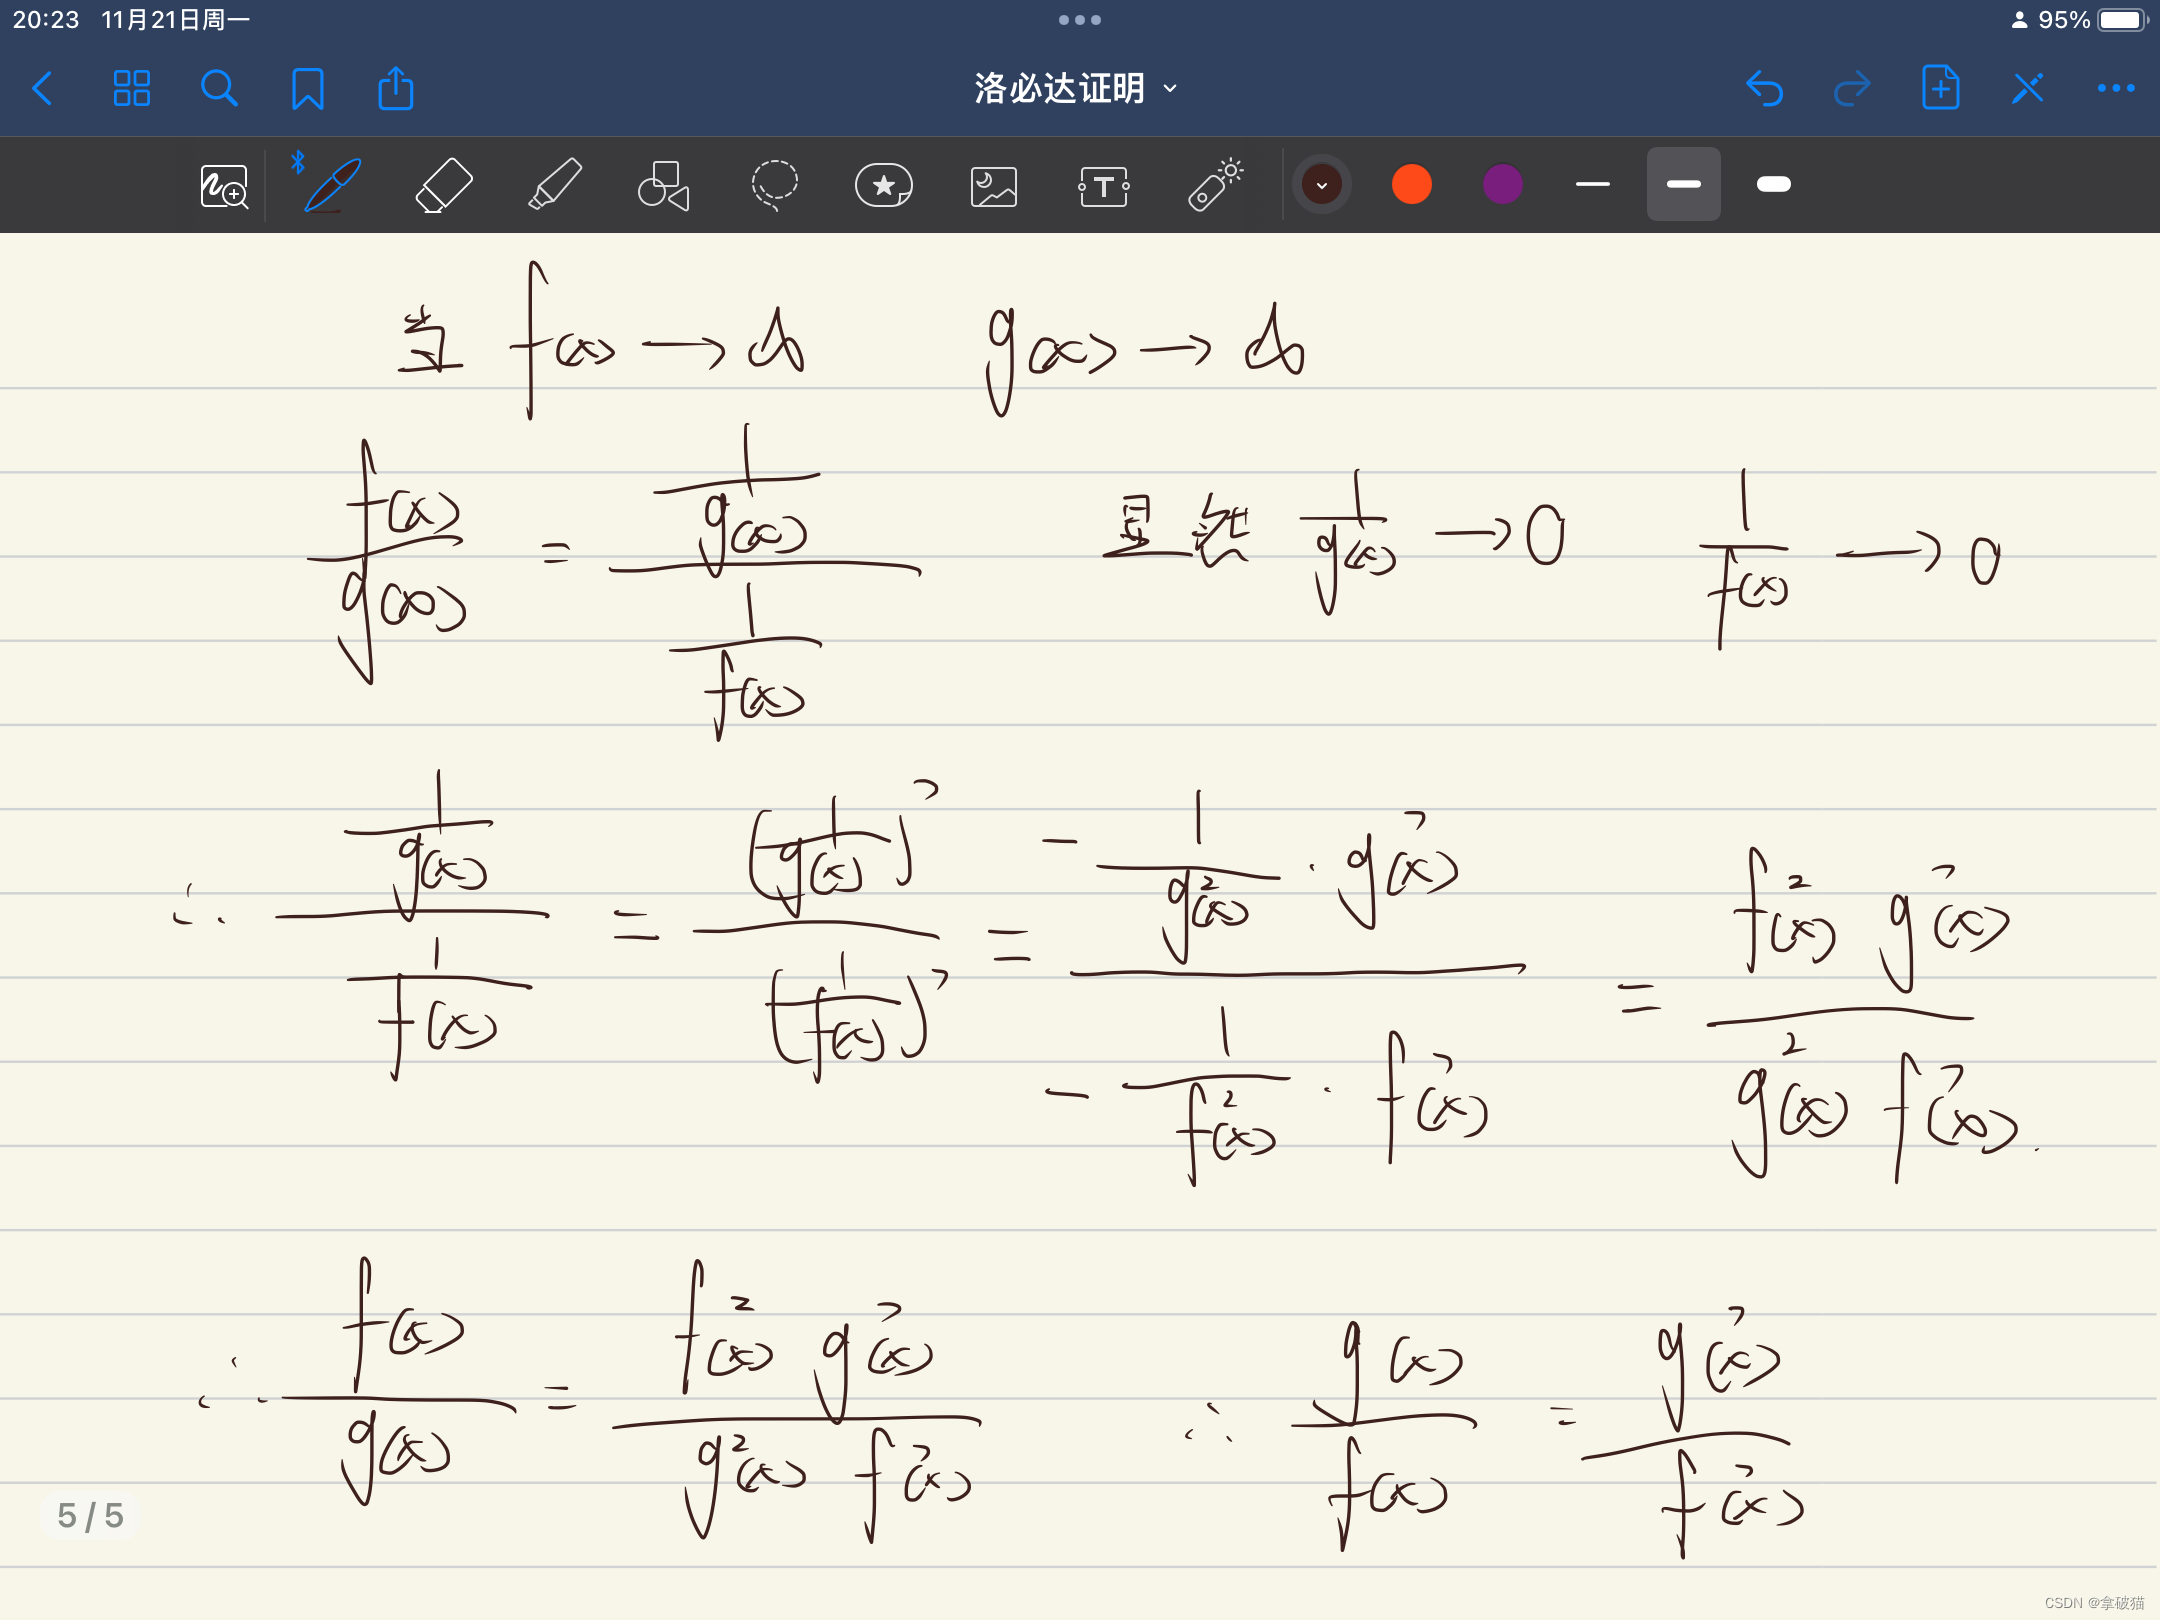 20:23 11月21日周一 95%
洛必达证明
当 f(x) → ∞ g(x) → ∞
f(x)/g(x) = (1/g(x))/(1/f(x)) 显然 1/g(x) → 0 1/f(x) → 0
∴ (1/g(x))/(1/f(x)) = (1/g(x))'/(1/f(x))' = (-1/g²(x) · g'(x))/(-1/f²(x) · f'(x)) = f²(x) g'(x)/g²(x) f'(x).
∴ f(x)/g(x) = f²(x) g'(x)/g²(x) f'(x) ∴ g(x)/f(x) = g'(x)/f'(x)
5 / 5
CSDN @拿破猫